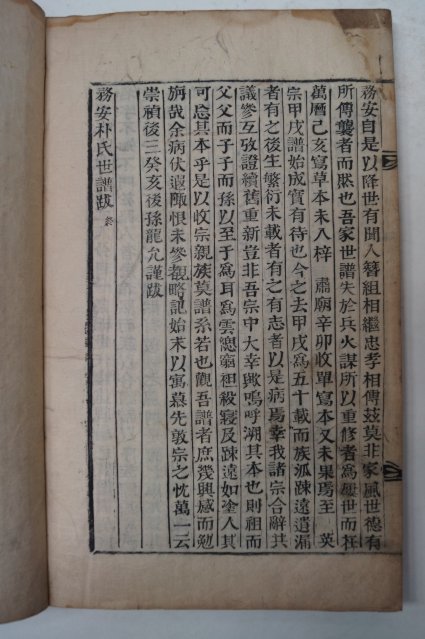 務安自是以降世有聞人簪組相繼忠孝相傳玆莫非家風世德有
所傳襲者而然也吾家世譜失於兵火謀所以重修者爲屢世而在
萬曆己亥寫草本未入梓　肅廟辛卯收單寫本又未果焉至　英
宗甲戌譜始成實有待也今之去甲戌爲五十載而族派踈遠遺漏
者有之後生繁衍未載者有之有志者以是病焉幸我諸宗合辭共
議參互攷證續舊重新豈非吾宗中大幸歟嗚呼溯其本也則祖而
父父而子子而孫以至于爲耳爲雲緦竆袒殺寖及踈遠如塗人其
可忘其本乎是以收宗親族莫譜系若也觀吾譜者庶幾興感而勉
旃哉余病伏遐陬恨未參觀略記始末以寓慕先敦宗之忱萬一云
崇禎後三癸亥後孫龍允謹跋
務安朴氏世譜跋 終